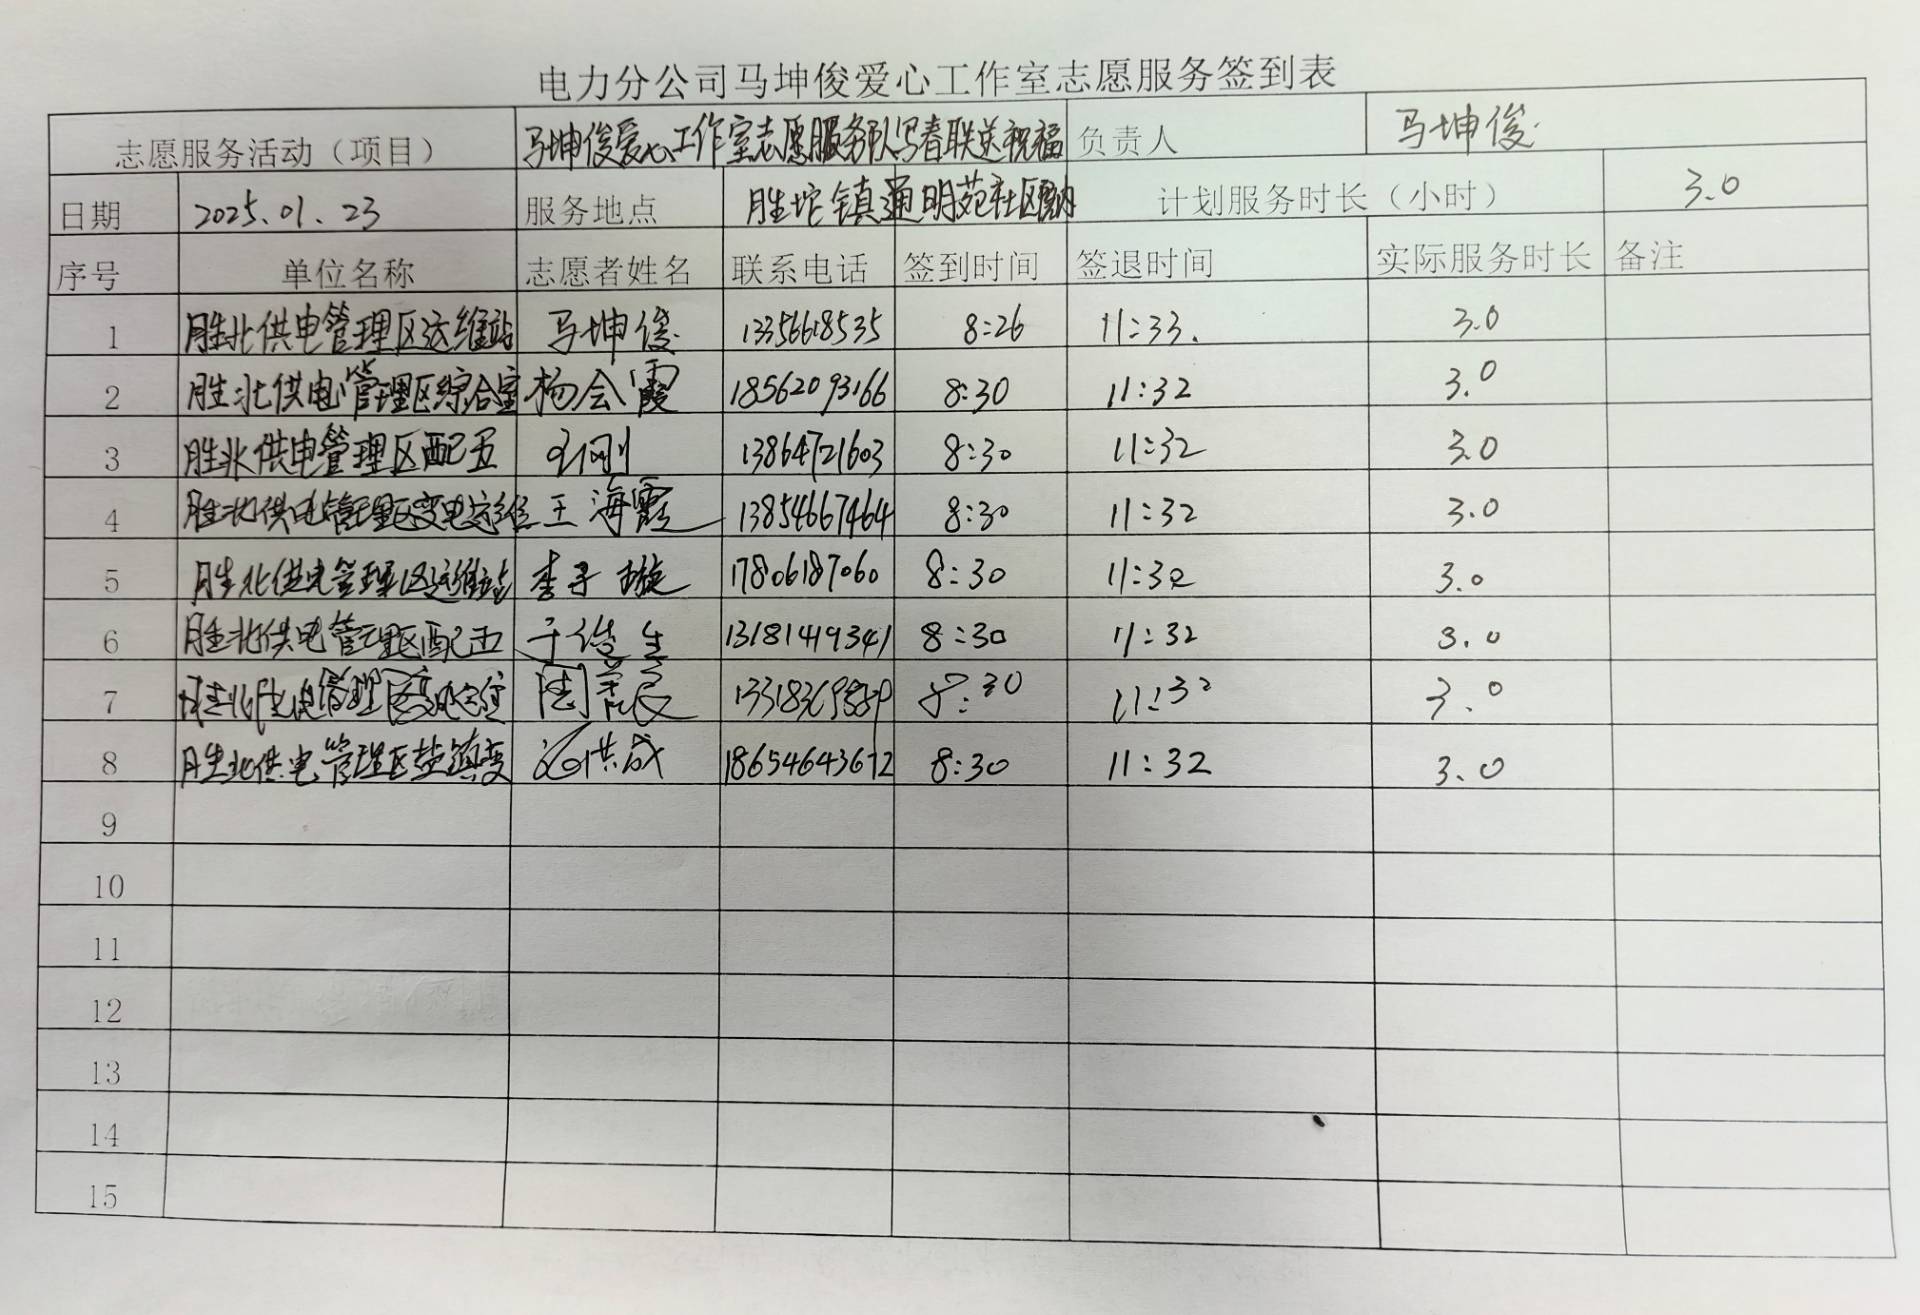 电力分公司马坤俊爱心工作室志愿服务签到表
志愿服务活动（项目） 马坤俊爱心工作室志愿服务队写春联送祝福 负责人 马坤俊
日期 2025.01.23 服务地点 胜坨镇通明苑社区 计划服务时长（小时） 3.0
序号 单位名称 志愿者姓名 联系电话 签到时间 签退时间 实际服务时长 备注
1 胜北供电管理区运维站 马坤俊 13356618535 8:26 11:33. 3.0
2 胜北供电管理区综合室 杨会霞 18562093166 8:30 11:32 3.0
3 胜北供电管理区配五 王刚 13864721603 8:30 11:32 3.0
4 胜北供电管理区变电运维 王海霞 13854667464 8:30 11:32 3.0
5 胜北供电管理区运维站 李子璇 17806187060 8:30 11:32 3.0
6 胜北供电管理区配五 于 生 13181419341 8:30 11:32 3.0
7 胜北供电管理区变电运维 8:30 11:32 3.0
8 胜北供电管理区盐镇变 洪成 18654643672 8:30 11:32 3.0
9
10
11
12
13
14
15